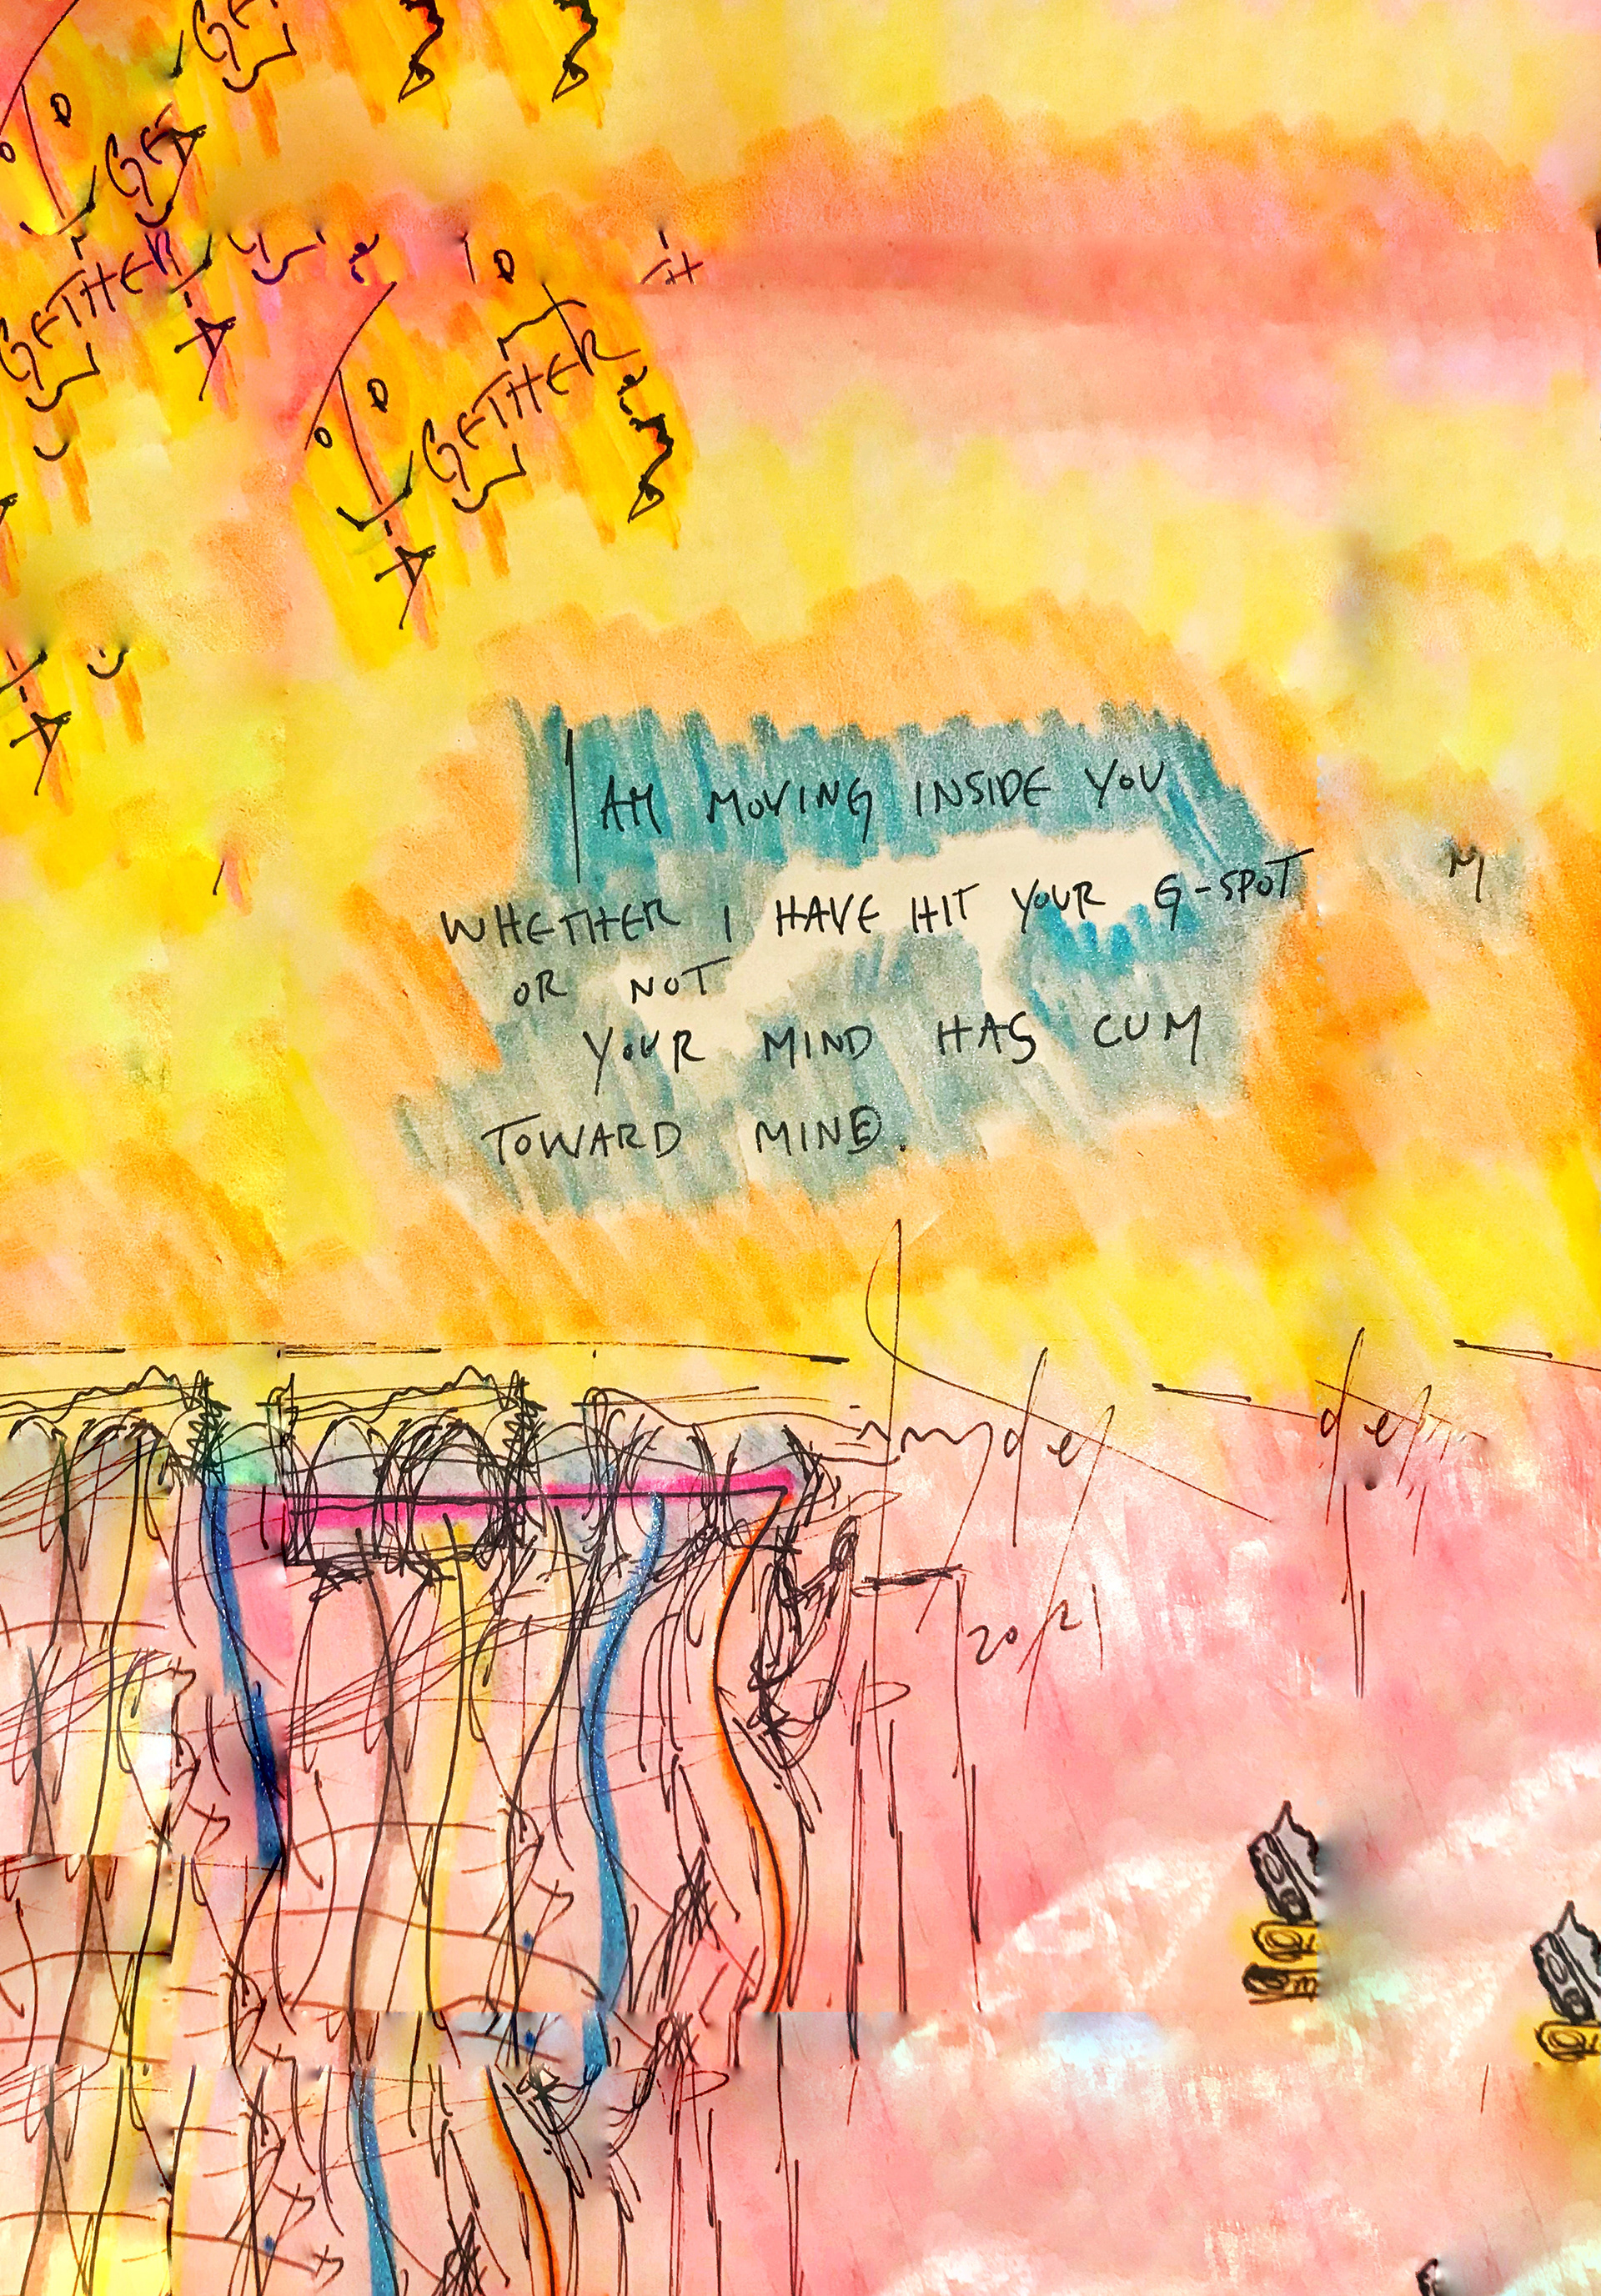 GE
GE
GETHER
GETHER
I AM MOVING INSIDE YOU
WHETHER I HAVE HIT YOUR G-SPOT
M
OR NOT
YOUR MIND HAS CUM
TOWARD MINE.
2021